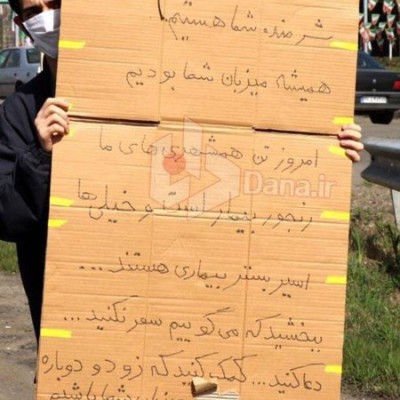 شرمنده شما هستیم
همیشه میزبان شما بودیم
امروز تن همشهری های ما
Dana.ir
رنجور بیمار است و خیلی ها
اسیر بستر بیماری هستند ...
ببخشید که می گوییم سفر نکنید ...
دعا کنید ... کمک کنید که زود دوباره
میزبان شما باشیم